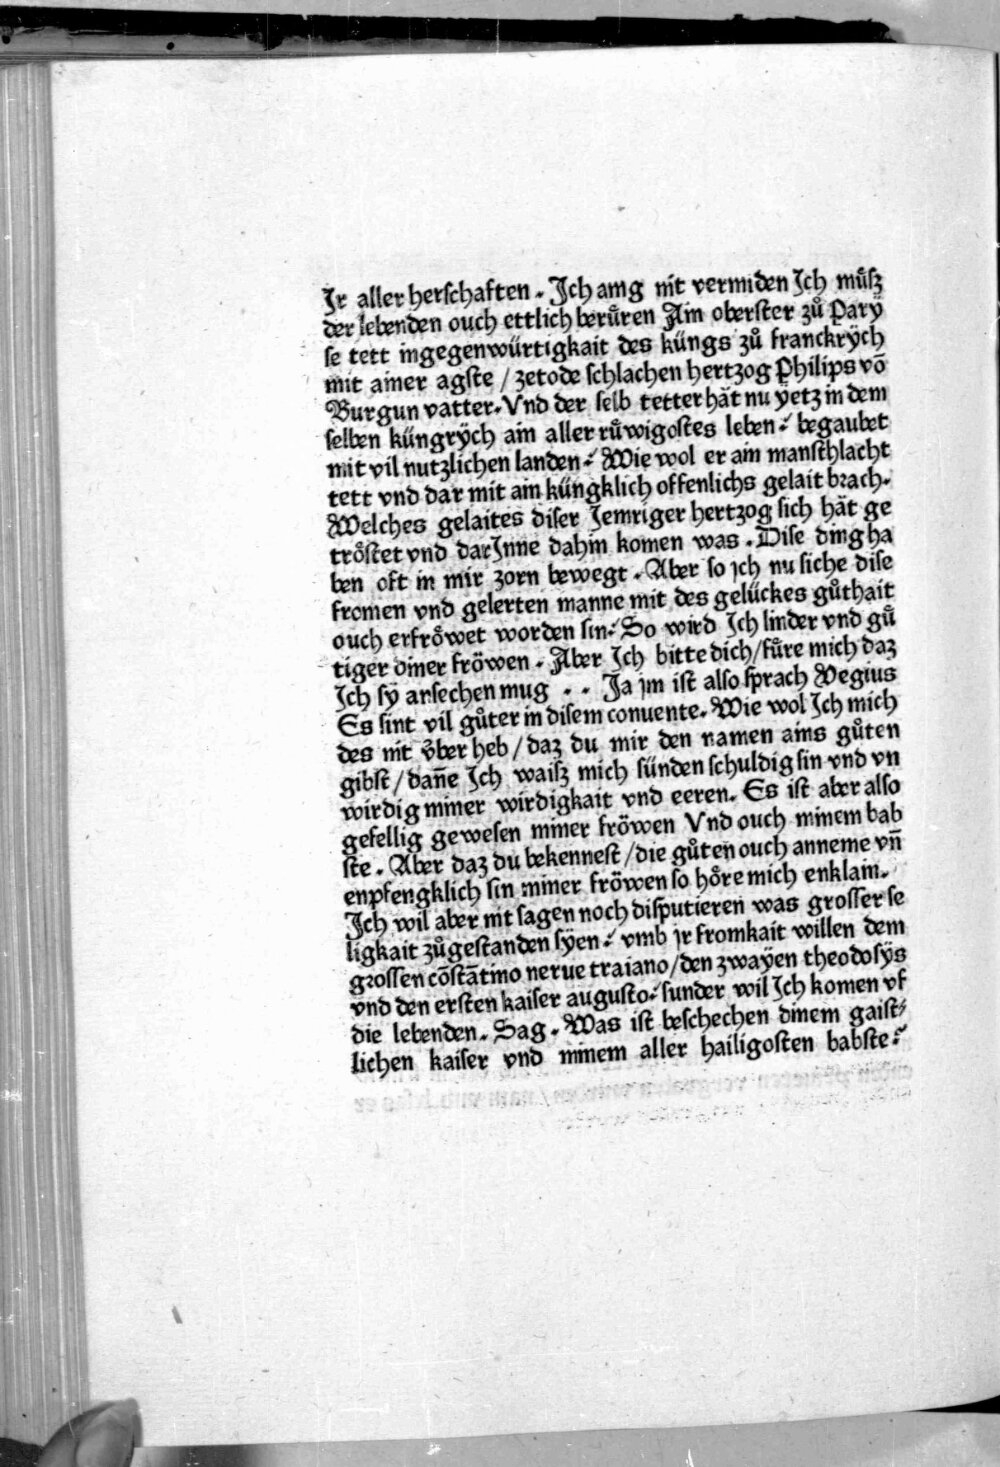 Jr aller herſchaften . Jch amg nit vermiden Jch muͤſz
der lebenden ouch ettlich beruͤren Ain oberſter zuͦ Parÿ
ſe tett ingegenwürtigkait des küngs zuͦ franckrÿch
mit ainer agſte / zetode ſchlachen hertzog Philips võ
Burgun vatter. Vnd der ſelb tetter hãt nu yetz in dem
ſelben küngrÿch ain aller ruͤwigoſtes leben : begaubet
mit vil nutzlichen landen : Wie wol er ain manſchlacht
tett vnd dar mit ain küngklich offenlichs gelait brach.
Welches gelaites diſer Jemriger hertzog ſich hãt ge
troͤſtet vnd dar Jnne dahin komen was . Diſe ding ha
ben oft in mir zorn bewegt . Aber ſo ich nu ſiche diſe
fromen vnd gelerten manne mit des gelückes guͦthait
ouch erfroͤwet worden ſin : So wird Jch linder vnd guͤ
tiger diner fröwen . Aber Jch bitte dich / fuͤre mich daz
Jch ſÿ anſechen mug . . Ja im iſt alſo ſprach Vegius
Es ſint vil guͤter in diſem conuente. Wie wol Jch mich
des nit v̈ber heb / daz du mir den namen ains guͤten
gibſt / dañe Jch waiſz mich ſünden ſchuldig ſin vnd vn
wirdig miner wirdigkait vnd eeren. Es iſt aber alſo
gefellig geweſen miner fröwen Vnd ouch minem bab
ſte . Aber daz du bekenneſt / die guͤten ouch anneme vñ
enpfengklich ſin miner fröwen ſo hoͤre mich enklain.
Jch wil aber nit ſagen noch diſputieren was groſſer ſe
ligkait zuͦgeſtanden ſÿen : vmb jr fromkait willen dem
groſſen cõſtãtino nerue traiano / den zwaÿen theodoſÿs
vnd den erſten kaiſer auguſto : ſunder wil Jch komen vf
die lebenden . Sag . Was iſt beſchechen dinem gaiſt⸗
lichen kaiſer vnd minem aller hailigoſten babſte :